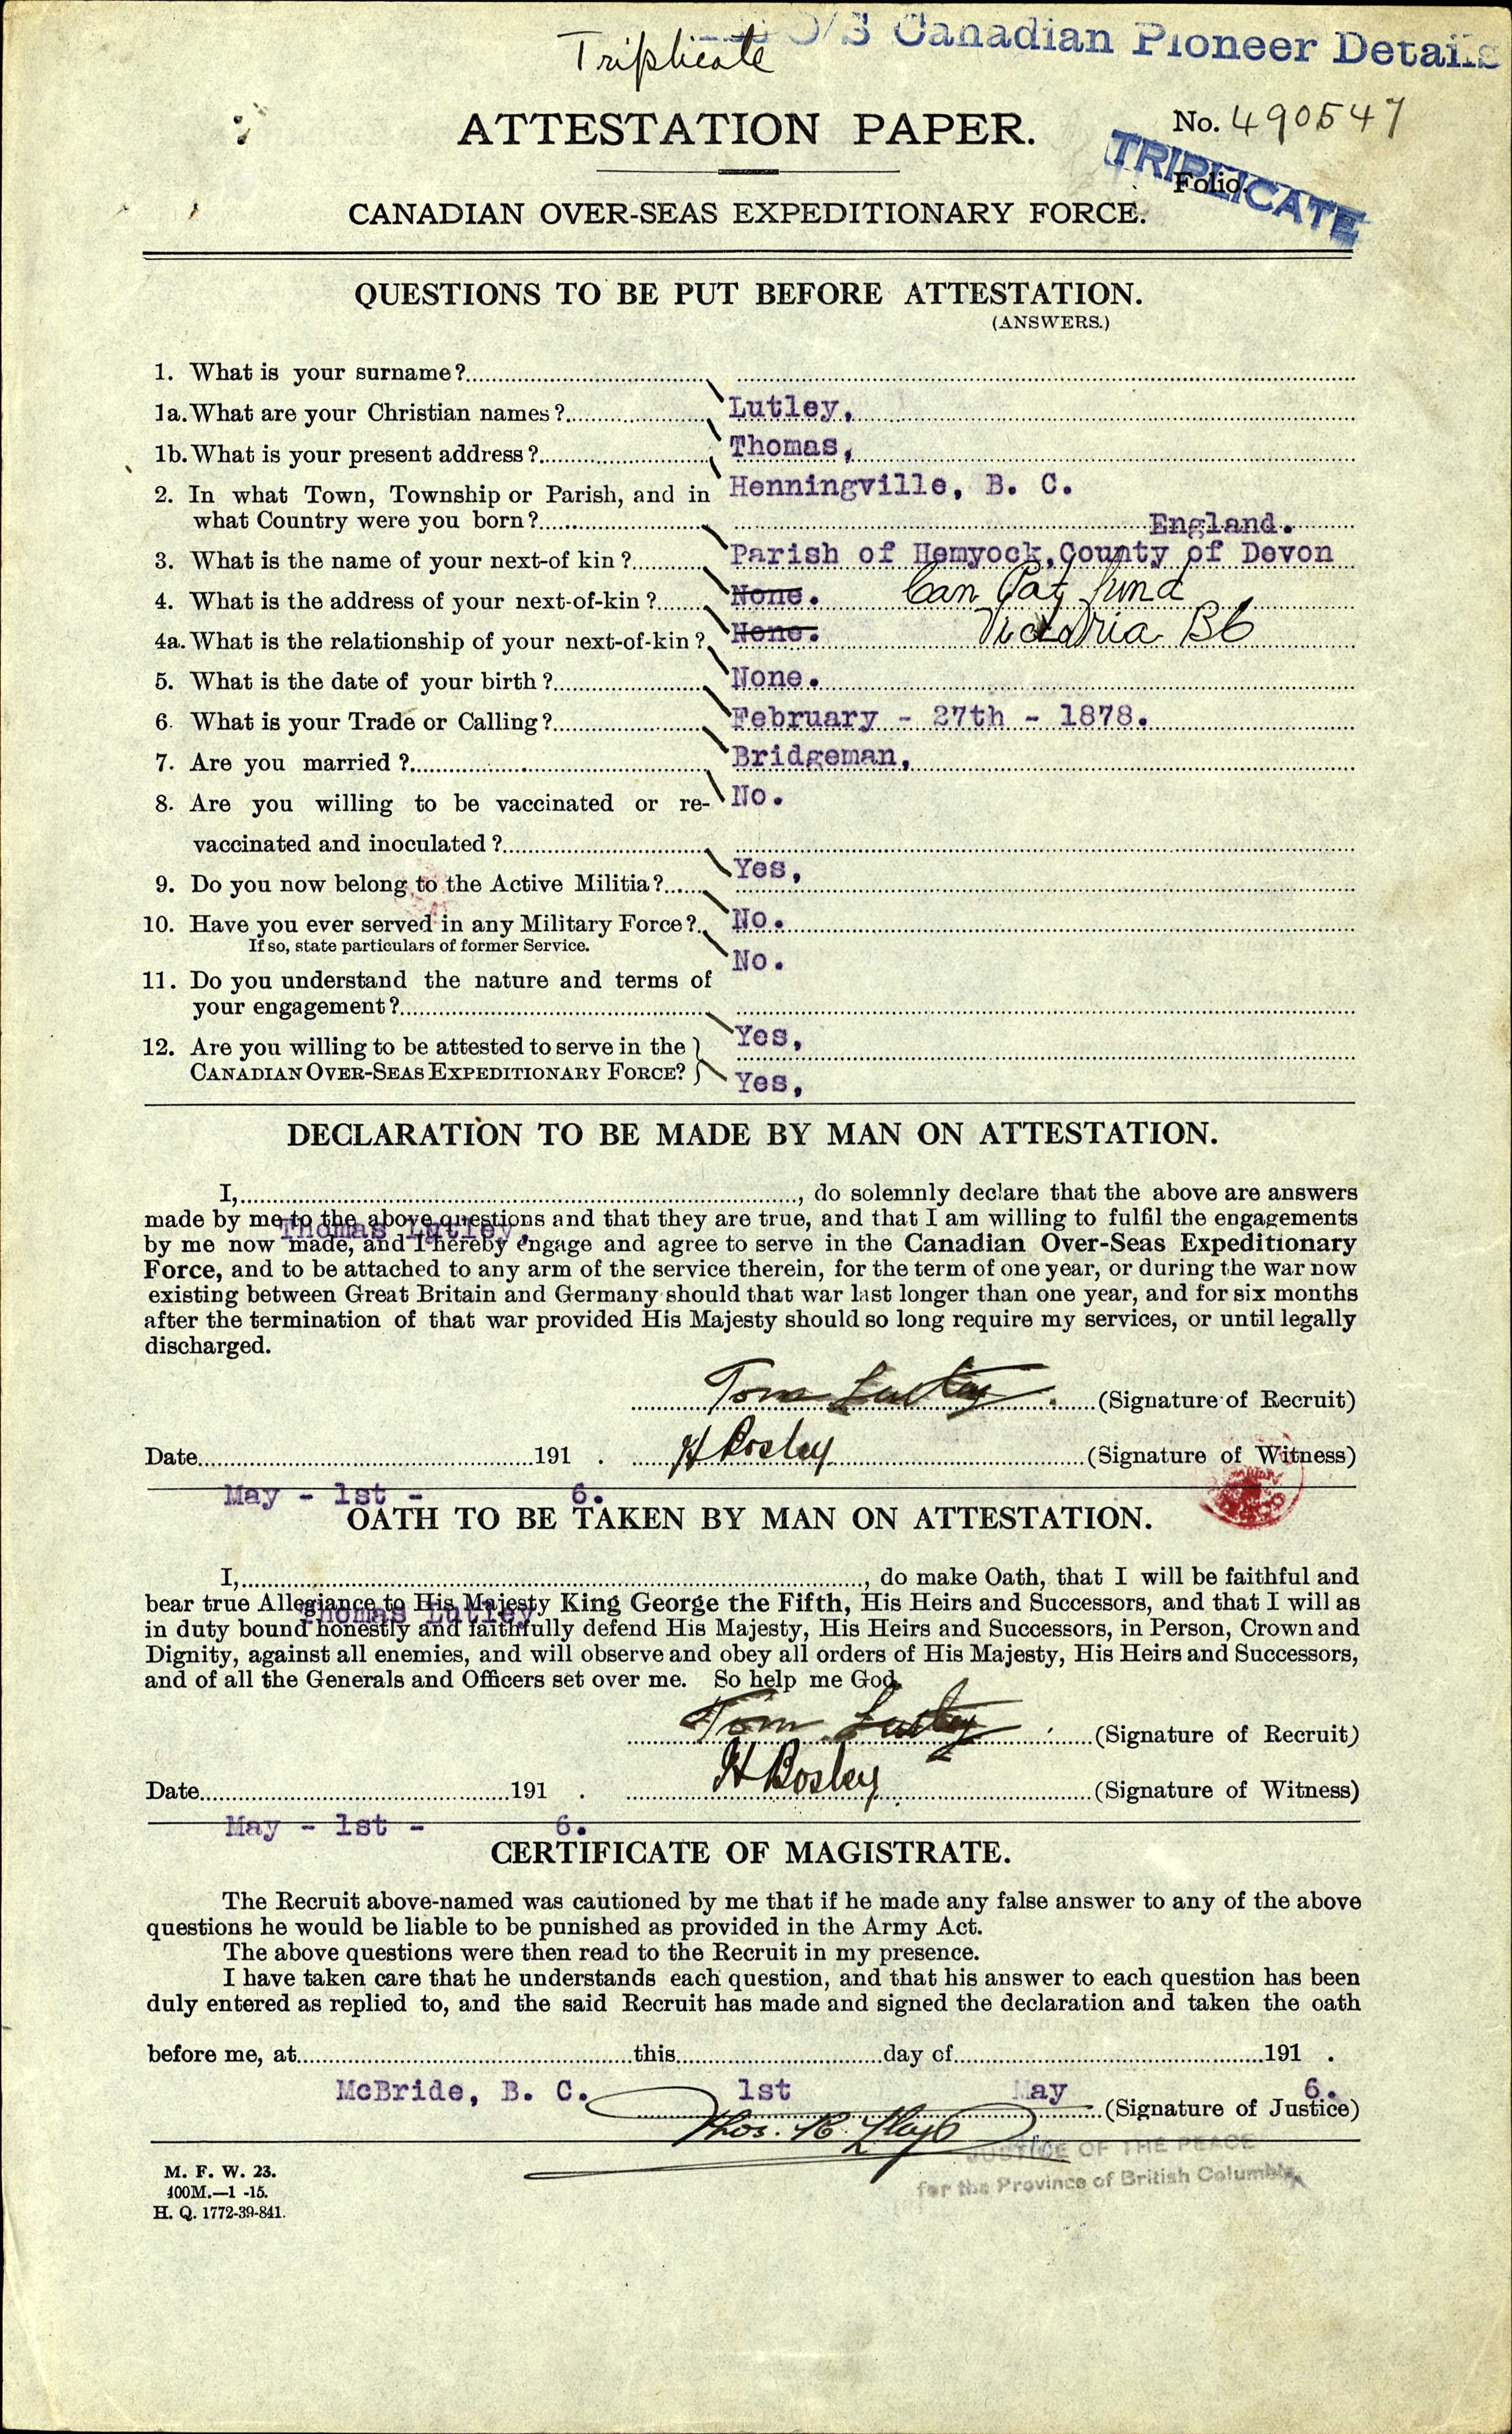 Triplicate
O/S Canadian Pioneer Details
ATTESTATION PAPER.
No. 490547
TRIPLICATE
Folio.
CANADIAN OVER-SEAS EXPEDITIONARY FORCE.
QUESTIONS TO BE PUT BEFORE ATTESTATION.
(ANSWERS.)
1. What is your surname?
1a. What are your Christian names? Lutley,
1b. What is your present address? Thomas,
2. In what Town, Township or Parish, and in Henningville, B. C.
what Country were you born? England.
3. What is the name of your next-of kin? Parish of Hemyock, County of Devon
4. What is the address of your next-of-kin? None. Can Pat Fund
4a. What is the relationship of your next-of-kin? None. Victoria BC
5. What is the date of your birth? None.
6. What is your Trade or Calling? February - 27th - 1878.
7. Are you married? Bridgeman,
8. Are you willing to be vaccinated or re- No.
vaccinated and inoculated?
Yes,
9. Do you now belong to the Active Militia?
10. Have you ever served in any Military Force? No.
If so, state particulars of former Service.
No.
11. Do you understand the nature and terms of
your engagement?
Yes,
12. Are you willing to be attested to serve in the
CANADIAN OVER-SEAS EXPEDITIONARY FORCE? Yes,
DECLARATION TO BE MADE BY MAN ON ATTESTATION.
I, , do solemnly declare that the above are answers
made by me to the above questions and that they are true, and that I am willing to fulfil the engagements
Thomas Lutley,
by me now made, and I hereby engage and agree to serve in the Canadian Over-Seas Expeditionary
Force, and to be attached to any arm of the service therein, for the term of one year, or during the war now
existing between Great Britain and Germany should that war last longer than one year, and for six months
after the termination of that war provided His Majesty should so long require my services, or until legally
discharged.
Tom Lutley (Signature of Recruit)
Date 191 . H Bosley (Signature of Witness)
May - 1st - 6.
OATH TO BE TAKEN BY MAN ON ATTESTATION.
I, , do make Oath, that I will be faithful and
bear true Allegiance to His Majesty King George the Fifth, His Heirs and Successors, and that I will as
Thomas Lutley
in duty bound honestly and faithfully defend His Majesty, His Heirs and Successors, in Person, Crown and
Dignity, against all enemies, and will observe and obey all orders of His Majesty, His Heirs and Successors,
and of all the Generals and Officers set over me. So help me God.
Tom Lutley (Signature of Recruit)
Date 191 . H Bosley (Signature of Witness)
May - 1st - 6.
CERTIFICATE OF MAGISTRATE.
The Recruit above-named was cautioned by me that if he made any false answer to any of the above
questions he would be liable to be punished as provided in the Army Act.
The above questions were then read to the Recruit in my presence.
I have taken care that he understands each question, and that his answer to each question has been
duly entered as replied to, and the said Recruit has made and signed the declaration and taken the oath
before me, at this day of 191 .
McBride, B. C. 1st May 6.
Thos. R. Lloyd (Signature of Justice)
JUSTICE OF THE PEACE
for the Province of British Columbia
M. F. W. 23.
400M.—1 -15.
H. Q. 1772-39-841.